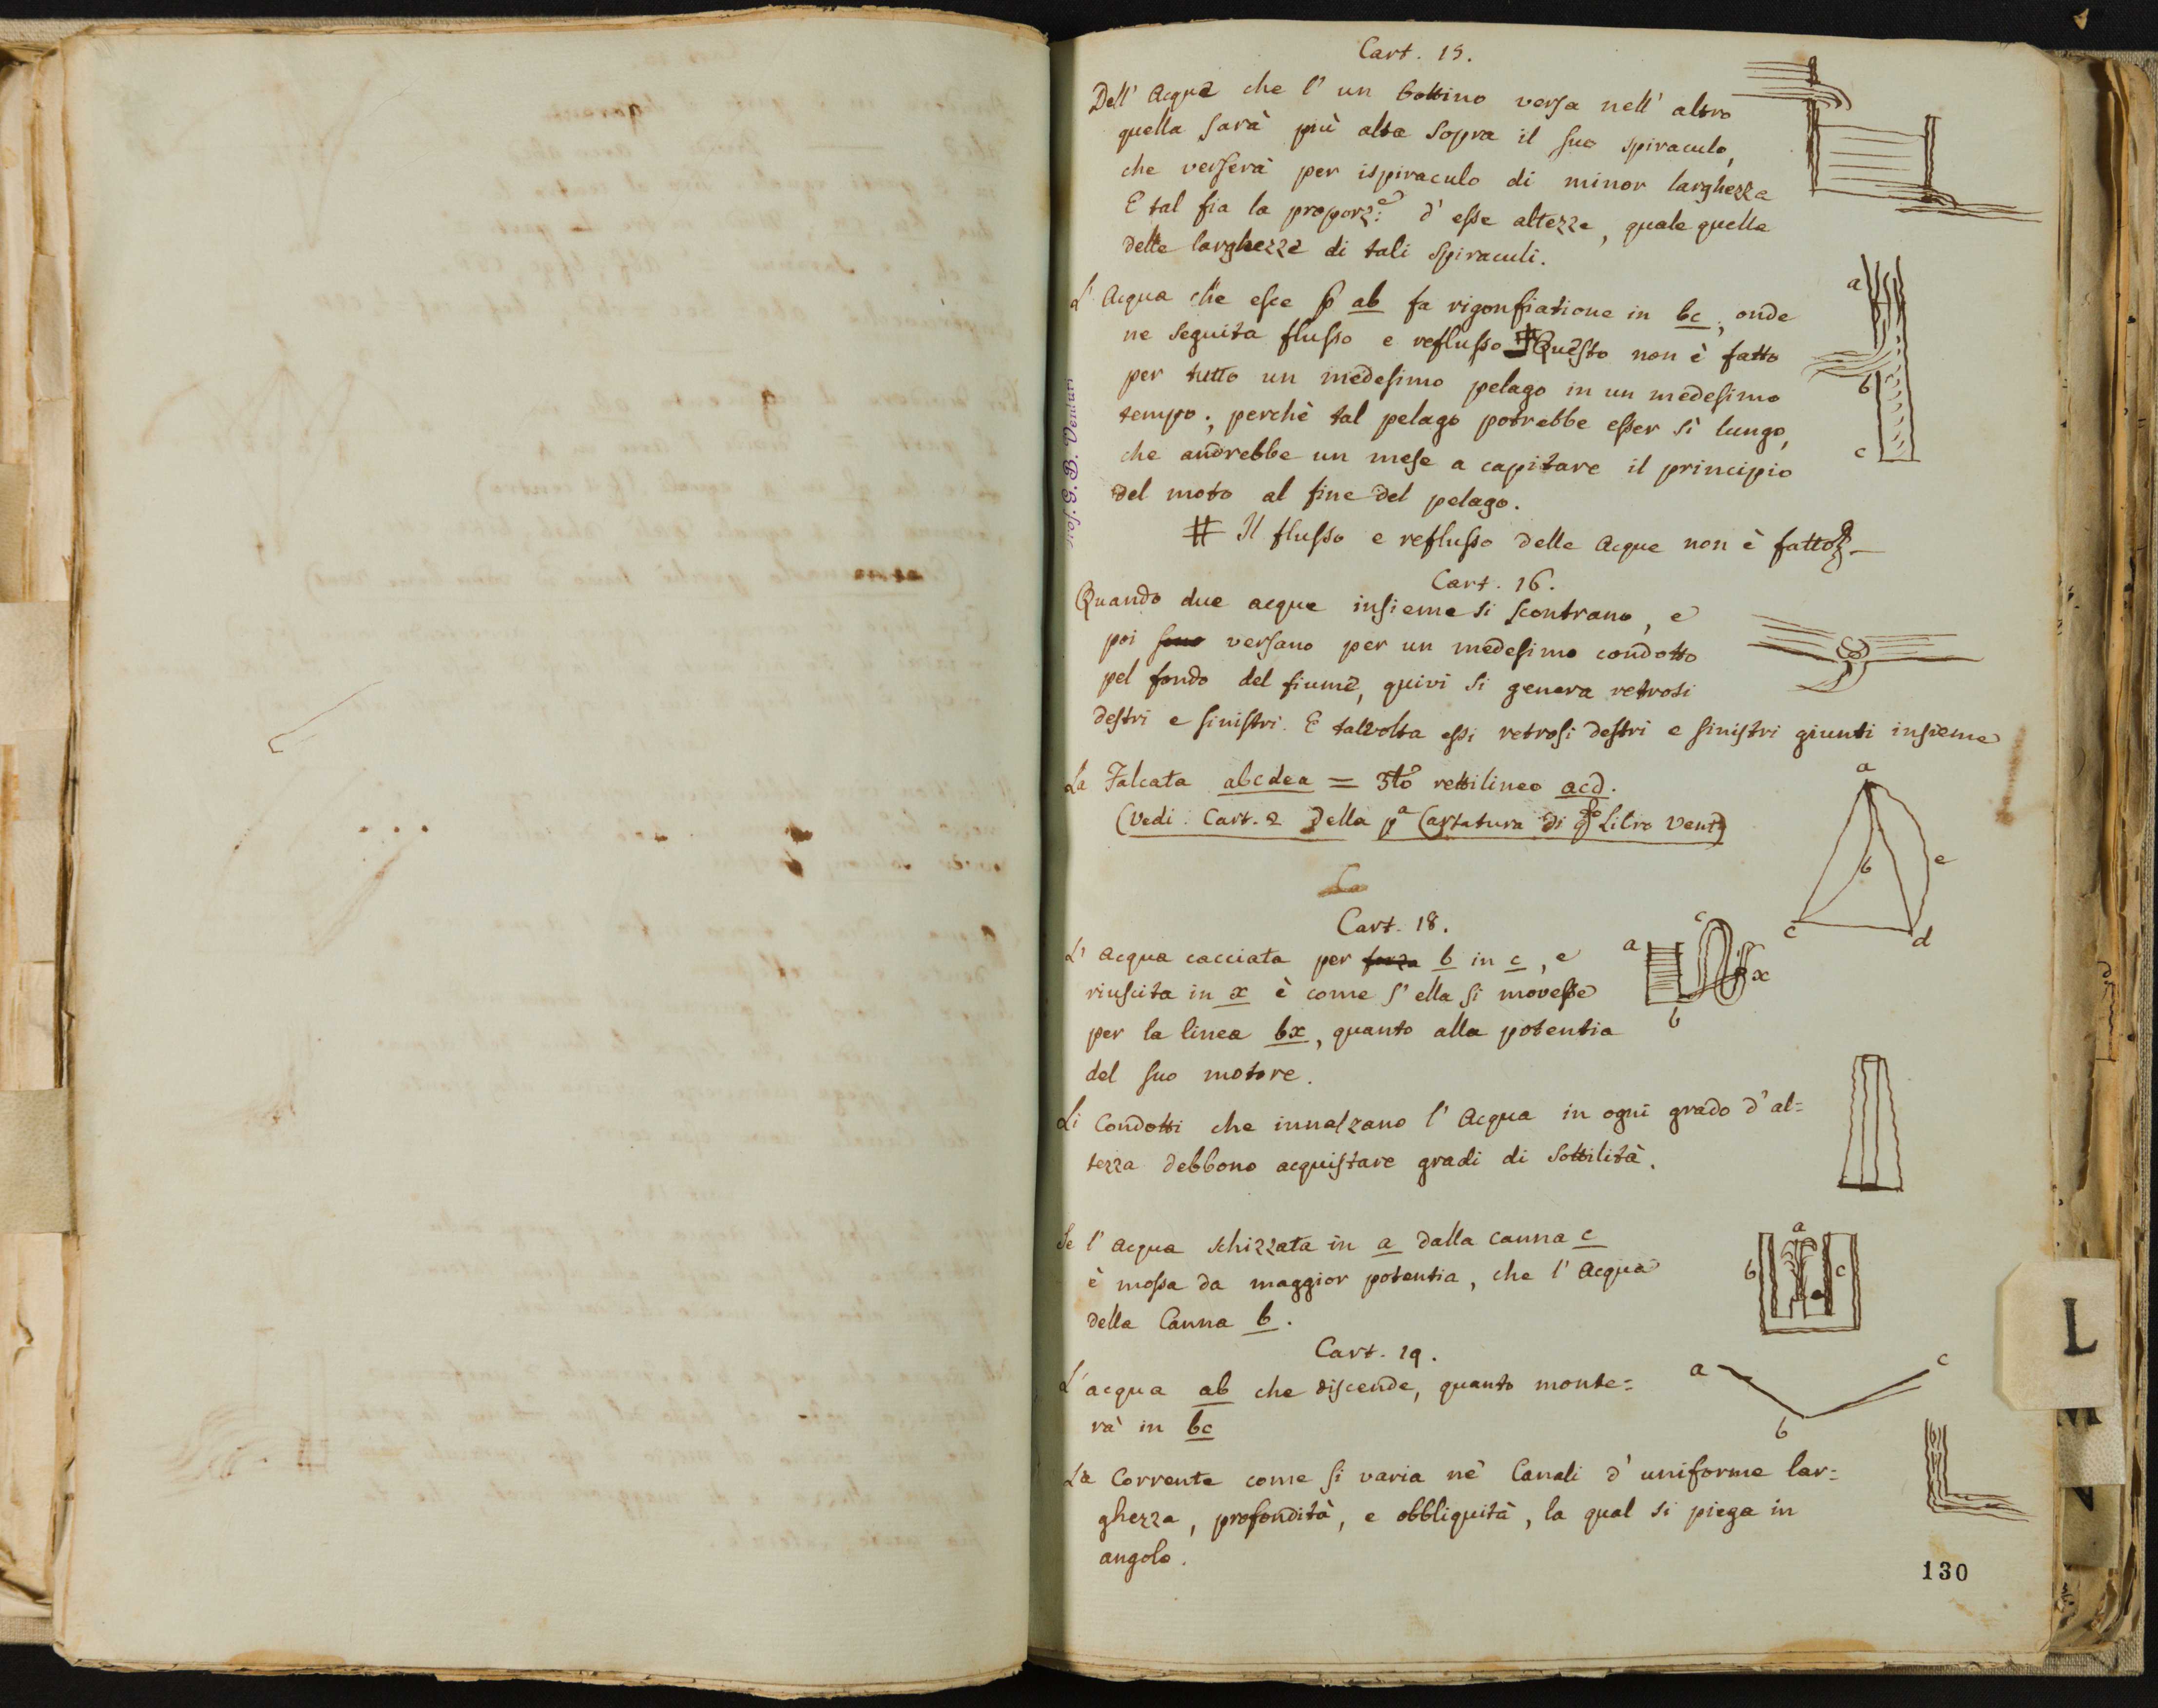 Cart. 15.
Dell' Acqua che l' un bottino versa nell' altro
quella sarà più alta sopra il suo spiraculo,
che verserà per ispiraculo di minor larghezza
E tal fia la proporz:e d' esse altezze, quale quella
delle larghezze di tali spiraculi.
a
L' Acqua che esce p ab fa rigonfiatione in bc; onde
ne seguita flusso e reflusso # Questo non è fatto
b
per tutto un medesimo pelago in un medesimo
tempo; perchè tal pelago potrebbe esser sì lungo,
che andrebbe un mese a capitare il principio
c
del moto al fine del pelago.
Prof. G. B. Venturi
# Il flusso e reflusso delle Acque non è fatto
Cart. 16.
Quando due acque insieme si scontrano, e
poi sono versano per un medesimo condotto
pel fondo del fiume, quivi si genera retrosi
destri e sinistri. E talvolta essi retrosi destri e sinistri giunti insieme
La Falcata abcdea = 3to rettilineo acd.
(Vedi: Cart. 2 della pa Cartatura di qto Libro Vent)
a
b
e
c
d
La
Cart. 18.
L' Acqua cacciata per forza b in c, e
riuscita in x è come s' ella si movesse
per la linea bx, quanto alla potentia
del suo motore.
a
c
x
b
Li Condotti che innalzano l' Acqua in ogni grado d' al=
tezza debbono acquistare gradi di sottilità.
Se l' Acqua schizzata in a dalla canna c
è mossa da maggior potentia, che l' Acqua
della Canna b.
a
b
c
Cart. 19.
L' acqua ab che discende, quanto monte=
rà in bc
a
c
b
La Corrente come si varia nè Canali d' uniforme lar=
ghezza, profondità, e obbliquità, la qual si piega in
angolo.
130
L
M
N